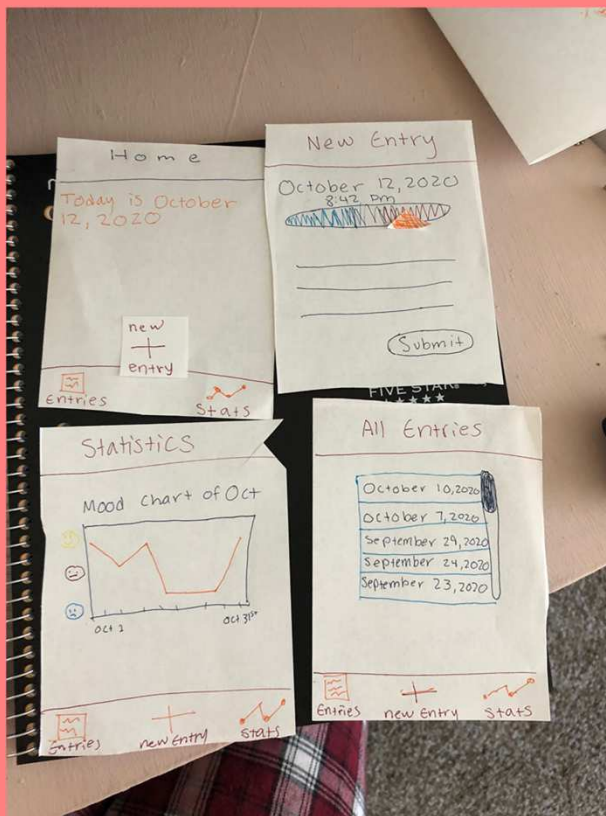 Home
Today is October
12, 2020
new
entry
Entries
Stats
New Entry
October 12, 2020
8:42 pm
Submit
FIVE STAR
Statistics
Mood chart of Oct
Oct 1
Oct 31st
Entries
new Entry
Stats
All Entries
October 10, 2020
October 7, 2020
September 29, 2020
September 24, 2020
September 23, 2020
Entries
new Entry
Stats